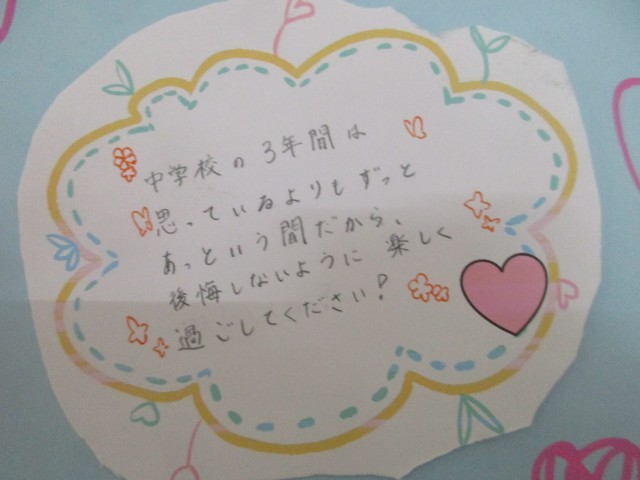 中学校の3年間は
思っているよりもずっと
あっという間だから、
後悔しないように 楽しく
過ごしてください!